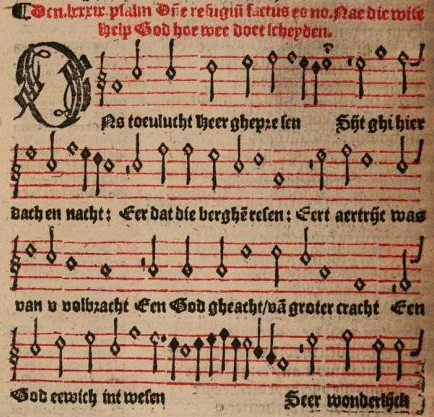 Den. lxxxix. psalm Dñe refugiũ factus es no. Nae die wise
Help God hoe wee doet scheyden.
ONs toeulucht Heer ghepresen Sijt ghi hier
dach en nacht: Eer dat die berghẽ resen: Eert aertrijc was
van v volbracht Een God gheacht/vã groter cracht Een
God eewich int wesen Seer wonderlijck